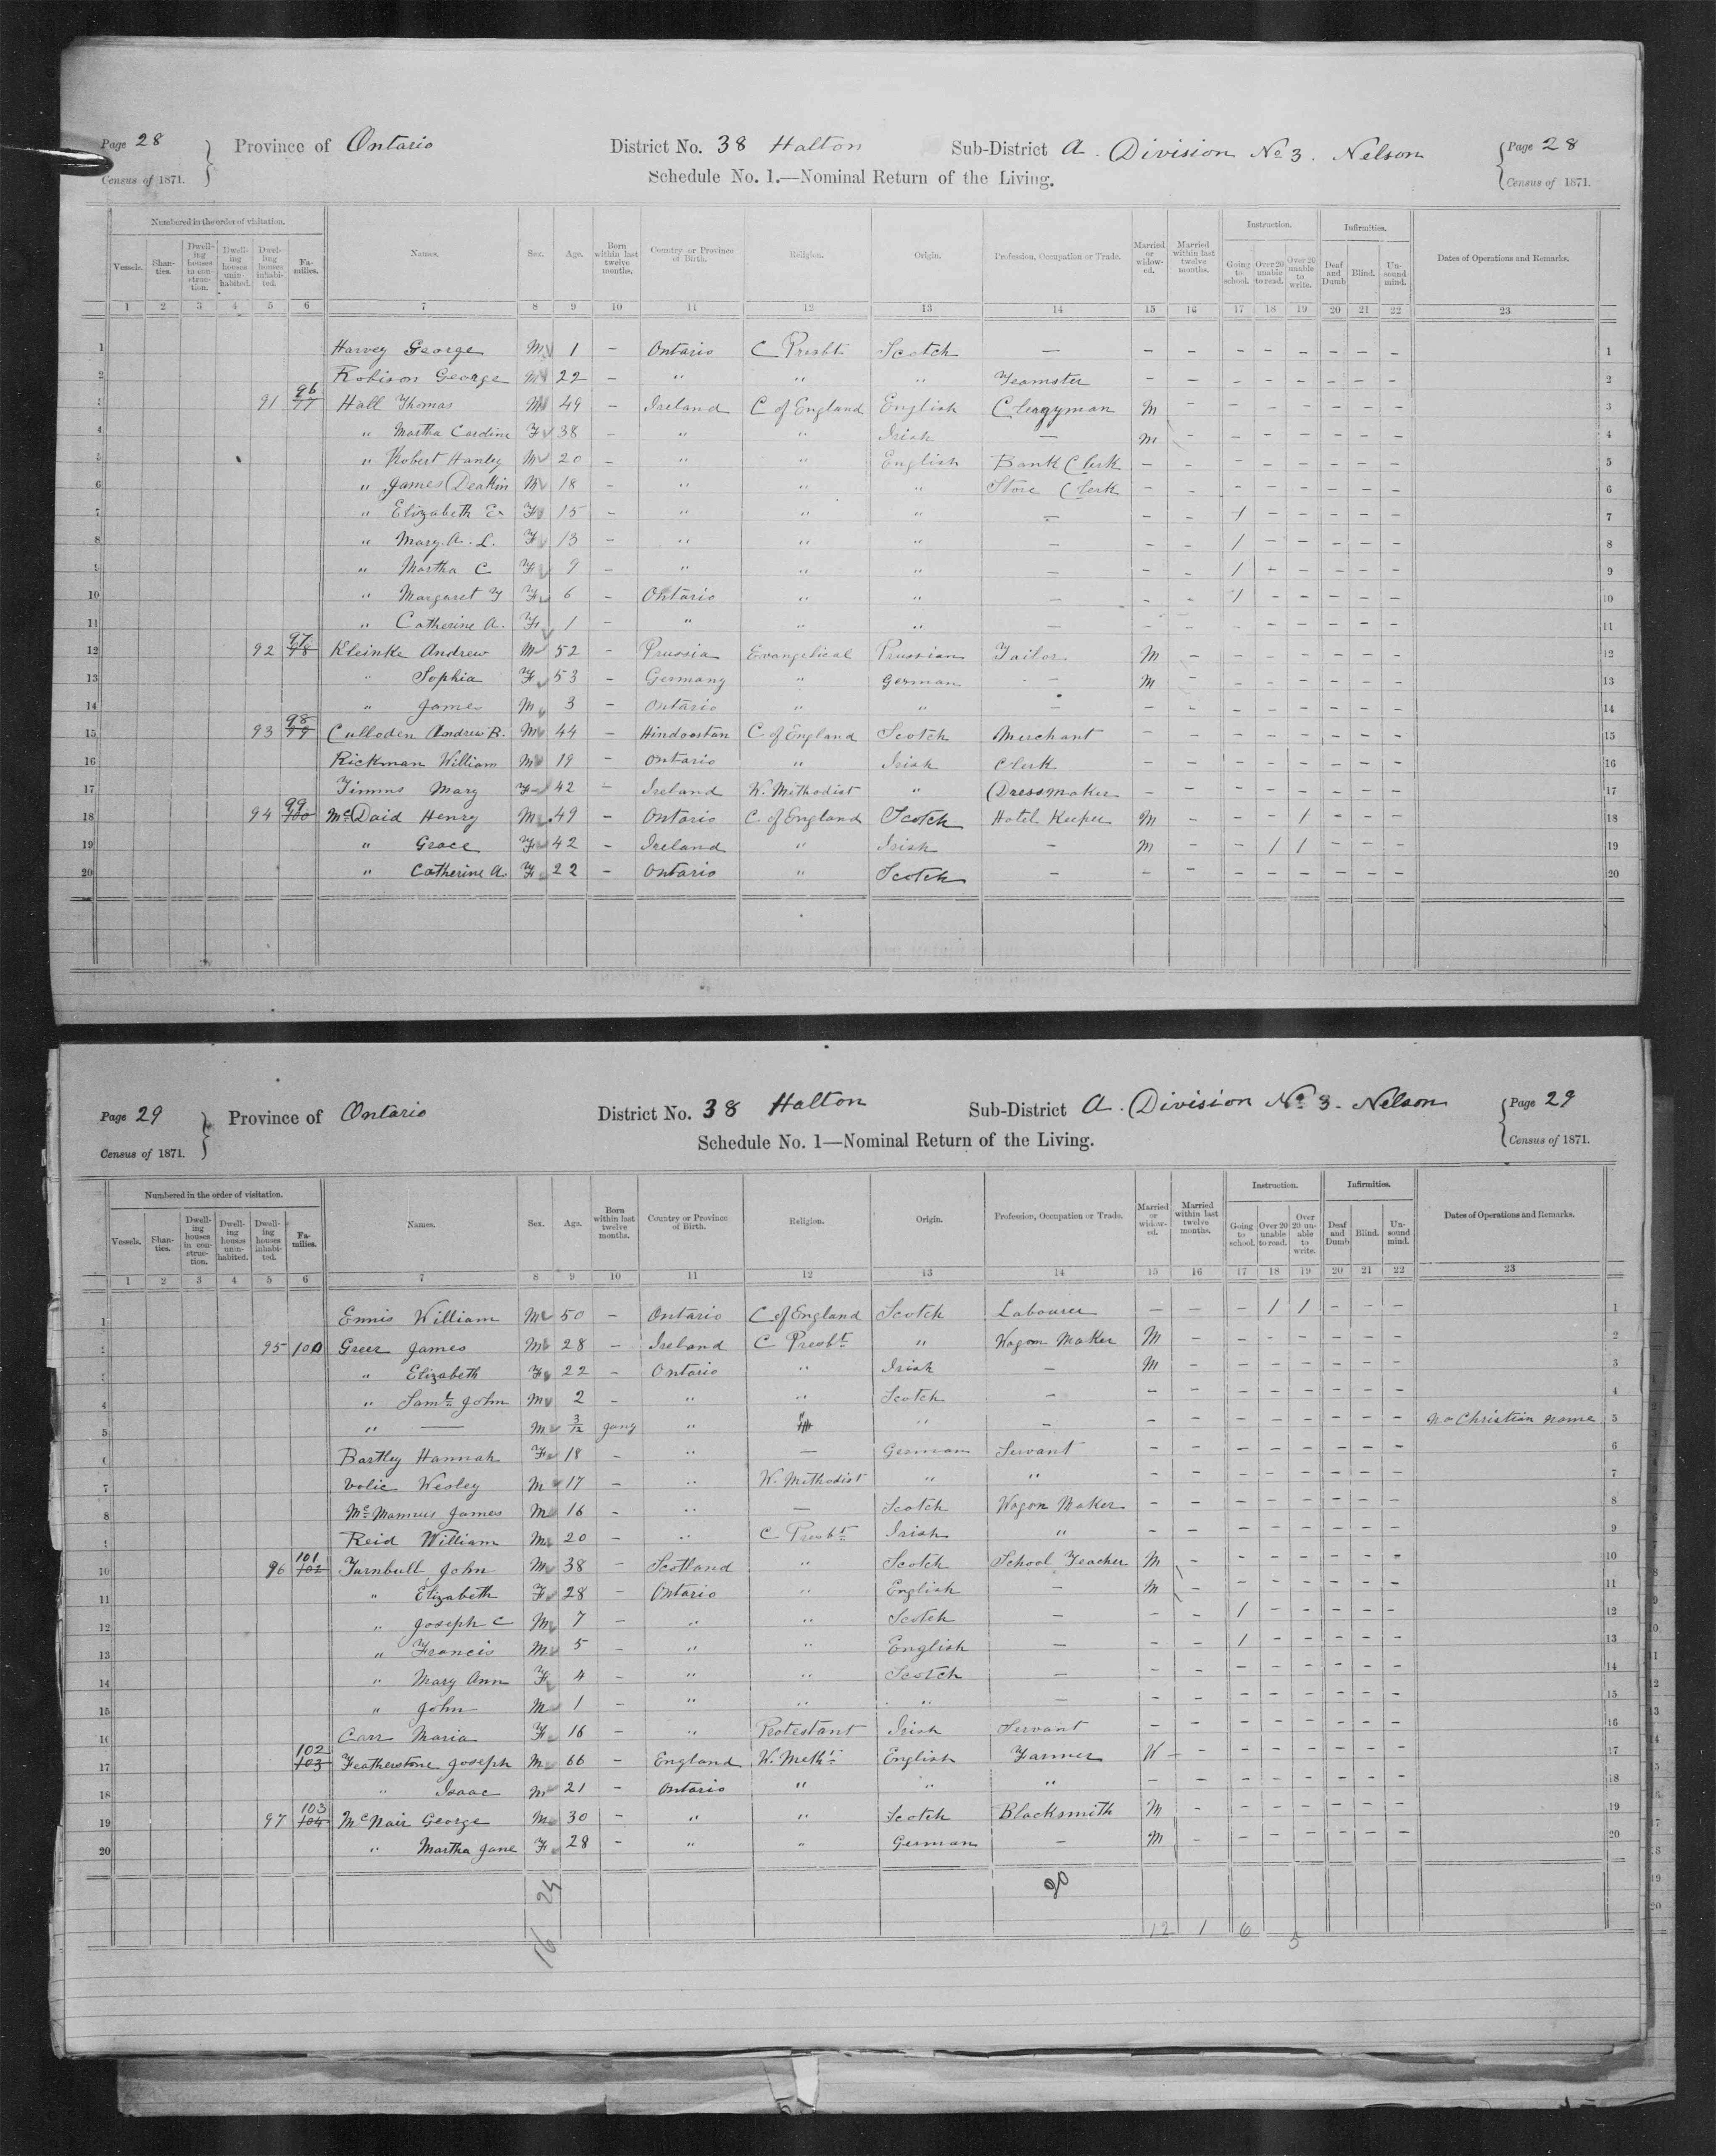 Page 28 Province of Ontario District No. 38 Halton Sub-District A. Division No 3. Nelson Page 28
Census of 1871. Schedule No. 1.—Nominal Return of the Living. Census of 1871.
Numbered in the order of visitation. Instruction. Infirmities.
Vessels. Shanties. Dwelling houses in construction. Dwelling houses uninhabited. Dwelling houses inhabited. Families. Names. Sex. Age. Born within last twelve months. Country or Province of Birth. Religion. Origin. Profession, Occupation or Trade. Married or widowed. Married within last twelve months. Going to school. Over 20 unable to read. Over 20 unable to write. Deaf and Dumb Blind. Unsound mind. Dates of Operations and Remarks.
1 2 3 4 5 6 7 8 9 10 11 12 13 14 15 16 17 18 19 20 21 22 23
1 Harvey George M 1 – Ontario C Presbt Scotch — – – – – – – – – 1
2 Robison George M 22 – " " " Teamster – – – – – – – – 2
3 91 96 77 Hall Thomas M 49 – Ireland C of England English Clergyman M – – – – – – – 3
4 " Martha Caroline F 38 – " " Irish — M – – – – – – – 4
5 " Robert Hanley M 20 – " " English Bank Clerk – – – – – – – – 5
6 " James Deakin M 18 – " " " Store Clerk – – – – – – – – 6
7 " Elizabeth E F 15 – " " " — – – 1 – – – – – 7
8 " Mary A. L. F 13 – " " " — – – 1 – – – – – 8
9 " Martha C F 9 – " " " — – – 1 – – – – – 9
10 " Margaret F F 6 – Ontario " " — – – 1 – – – – – 10
11 " Catherine A. F 1 – " " " — – – – – – – – – 11
12 92 97 98 Kleinke Andrew M 52 – Prussia Evangelical Prussian Tailor M – – – – – – – 12
13 " Sophia F 53 – Germany " German – M – – – – – – – 13
14 " James M 3 – Ontario " " – – – – – – – – – 14
15 93 98 99 Culloden Andrew B. M 44 – Hindoostan C. of England Scotch Merchant – – – – – – – – 15
16 Rickman William M 19 – Ontario " Irish Clerk – – – – – – – – 16
17 Timms Mary F 42 – Ireland W. Methodist " Dressmaker – – – – – – – – 17
18 94 99 100 McDaid Henry M 49 – Ontario C. of England Scotch Hotel Keeper M – – – 1 – – – 18
19 " Grace F 42 – Ireland " Irish – M – – 1 1 – – – 19
20 " Catherine A. F 22 – Ontario " Scotch – – – – – – – – – 20
Page 29 Province of Ontario District No. 38 Halton Sub-District A. Division No 3. Nelson Page 29
Census of 1871. Schedule No. 1—Nominal Return of the Living. Census of 1871.
Numbered in the order of visitation. Instruction. Infirmities.
Vessels. Shanties. Dwelling houses in construction. Dwelling houses uninhabited. Dwelling houses inhabited. Families. Names. Sex. Age. Born within last twelve months. Country or Province of Birth. Religion. Origin. Profession, Occupation or Trade. Married or widowed. Married within last twelve months. Going to school. Over 20 unable to read. Over 20 unable to write. Deaf and Dumb Blind. Unsound mind. Dates of Operations and Remarks.
1 2 3 4 5 6 7 8 9 10 11 12 13 14 15 16 17 18 19 20 21 22 23
1 Ennis William M 50 – Ontario C of England Scotch Labourer – – – 1 1 – – – 1
2 95 100 Greer James M 28 – Ireland C Presbt " Wagon Maker M – – – – – – – 2
3 " Elizabeth F 22 – Ontario " Irish – M – – – – – – – 3
4 " Saml John M 2 – " " Scotch – – – – – – – – – 4
5 " — M 3/12 Jany " " " – – – – – – – – – No Christian name 5
6 Bartley Hannah F 18 – " — German Servant – – – – – – – – 6
7 Volic Wesley M 17 – " W. Methodist " " – – – – – – – – 7
8 McManus James M 16 – " — Scotch Wagon Maker – – – – – – – – 8
9 Reid William M 20 – " C Presbt Irish " – – – – – – – – 9
10 96 101 102 Turnbull John M 38 – Scotland " Scotch School Teacher M – – – – – – – 10
11 " Elizabeth F 28 – Ontario " English – M – – – – – – – 11
12 " Joseph C M 7 – " " Scotch – – – 1 – – – – – 12
13 " Francis M 5 – " " English – – – 1 – – – – – 13
14 " Mary Ann F 4 – " " Scotch – – – – – – – – – 14
15 " John M 1 – " " " – – – – – – – – – 15
16 Carr Maria F 16 – " Protestant Irish Servant – – – – – – – – 16
17 102 103 Featherstone Joseph M 66 – England W. Metht English Farmer W – – – – – – – 17
18 " Isaac M 21 – Ontario " " " – – – – – – – – 18
19 97 103 104 McNair George M 30 – " " Scotch Blacksmith M – – – – – – – 19
20 " Martha Jane F 28 – " " German – M – – – – – – – 20
24 20
16 12 1 6 5